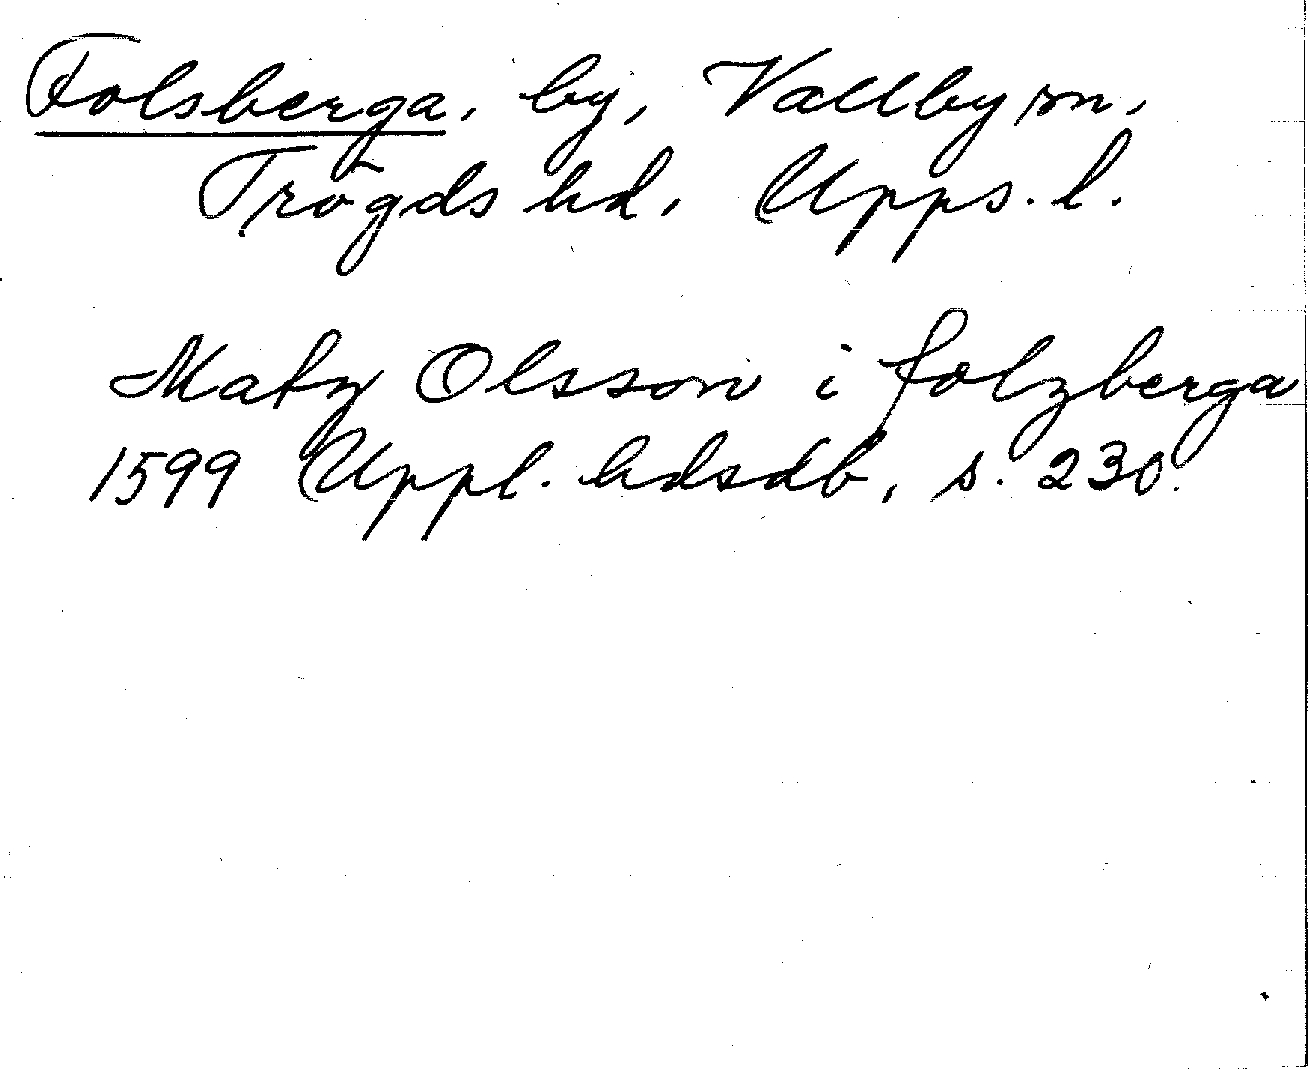 Folsberga, by, Vallby sn,
Trögds hd, Upps. l.
Matz Olsson i folzberga
1599 Uppl. hdsdb, s. 230.